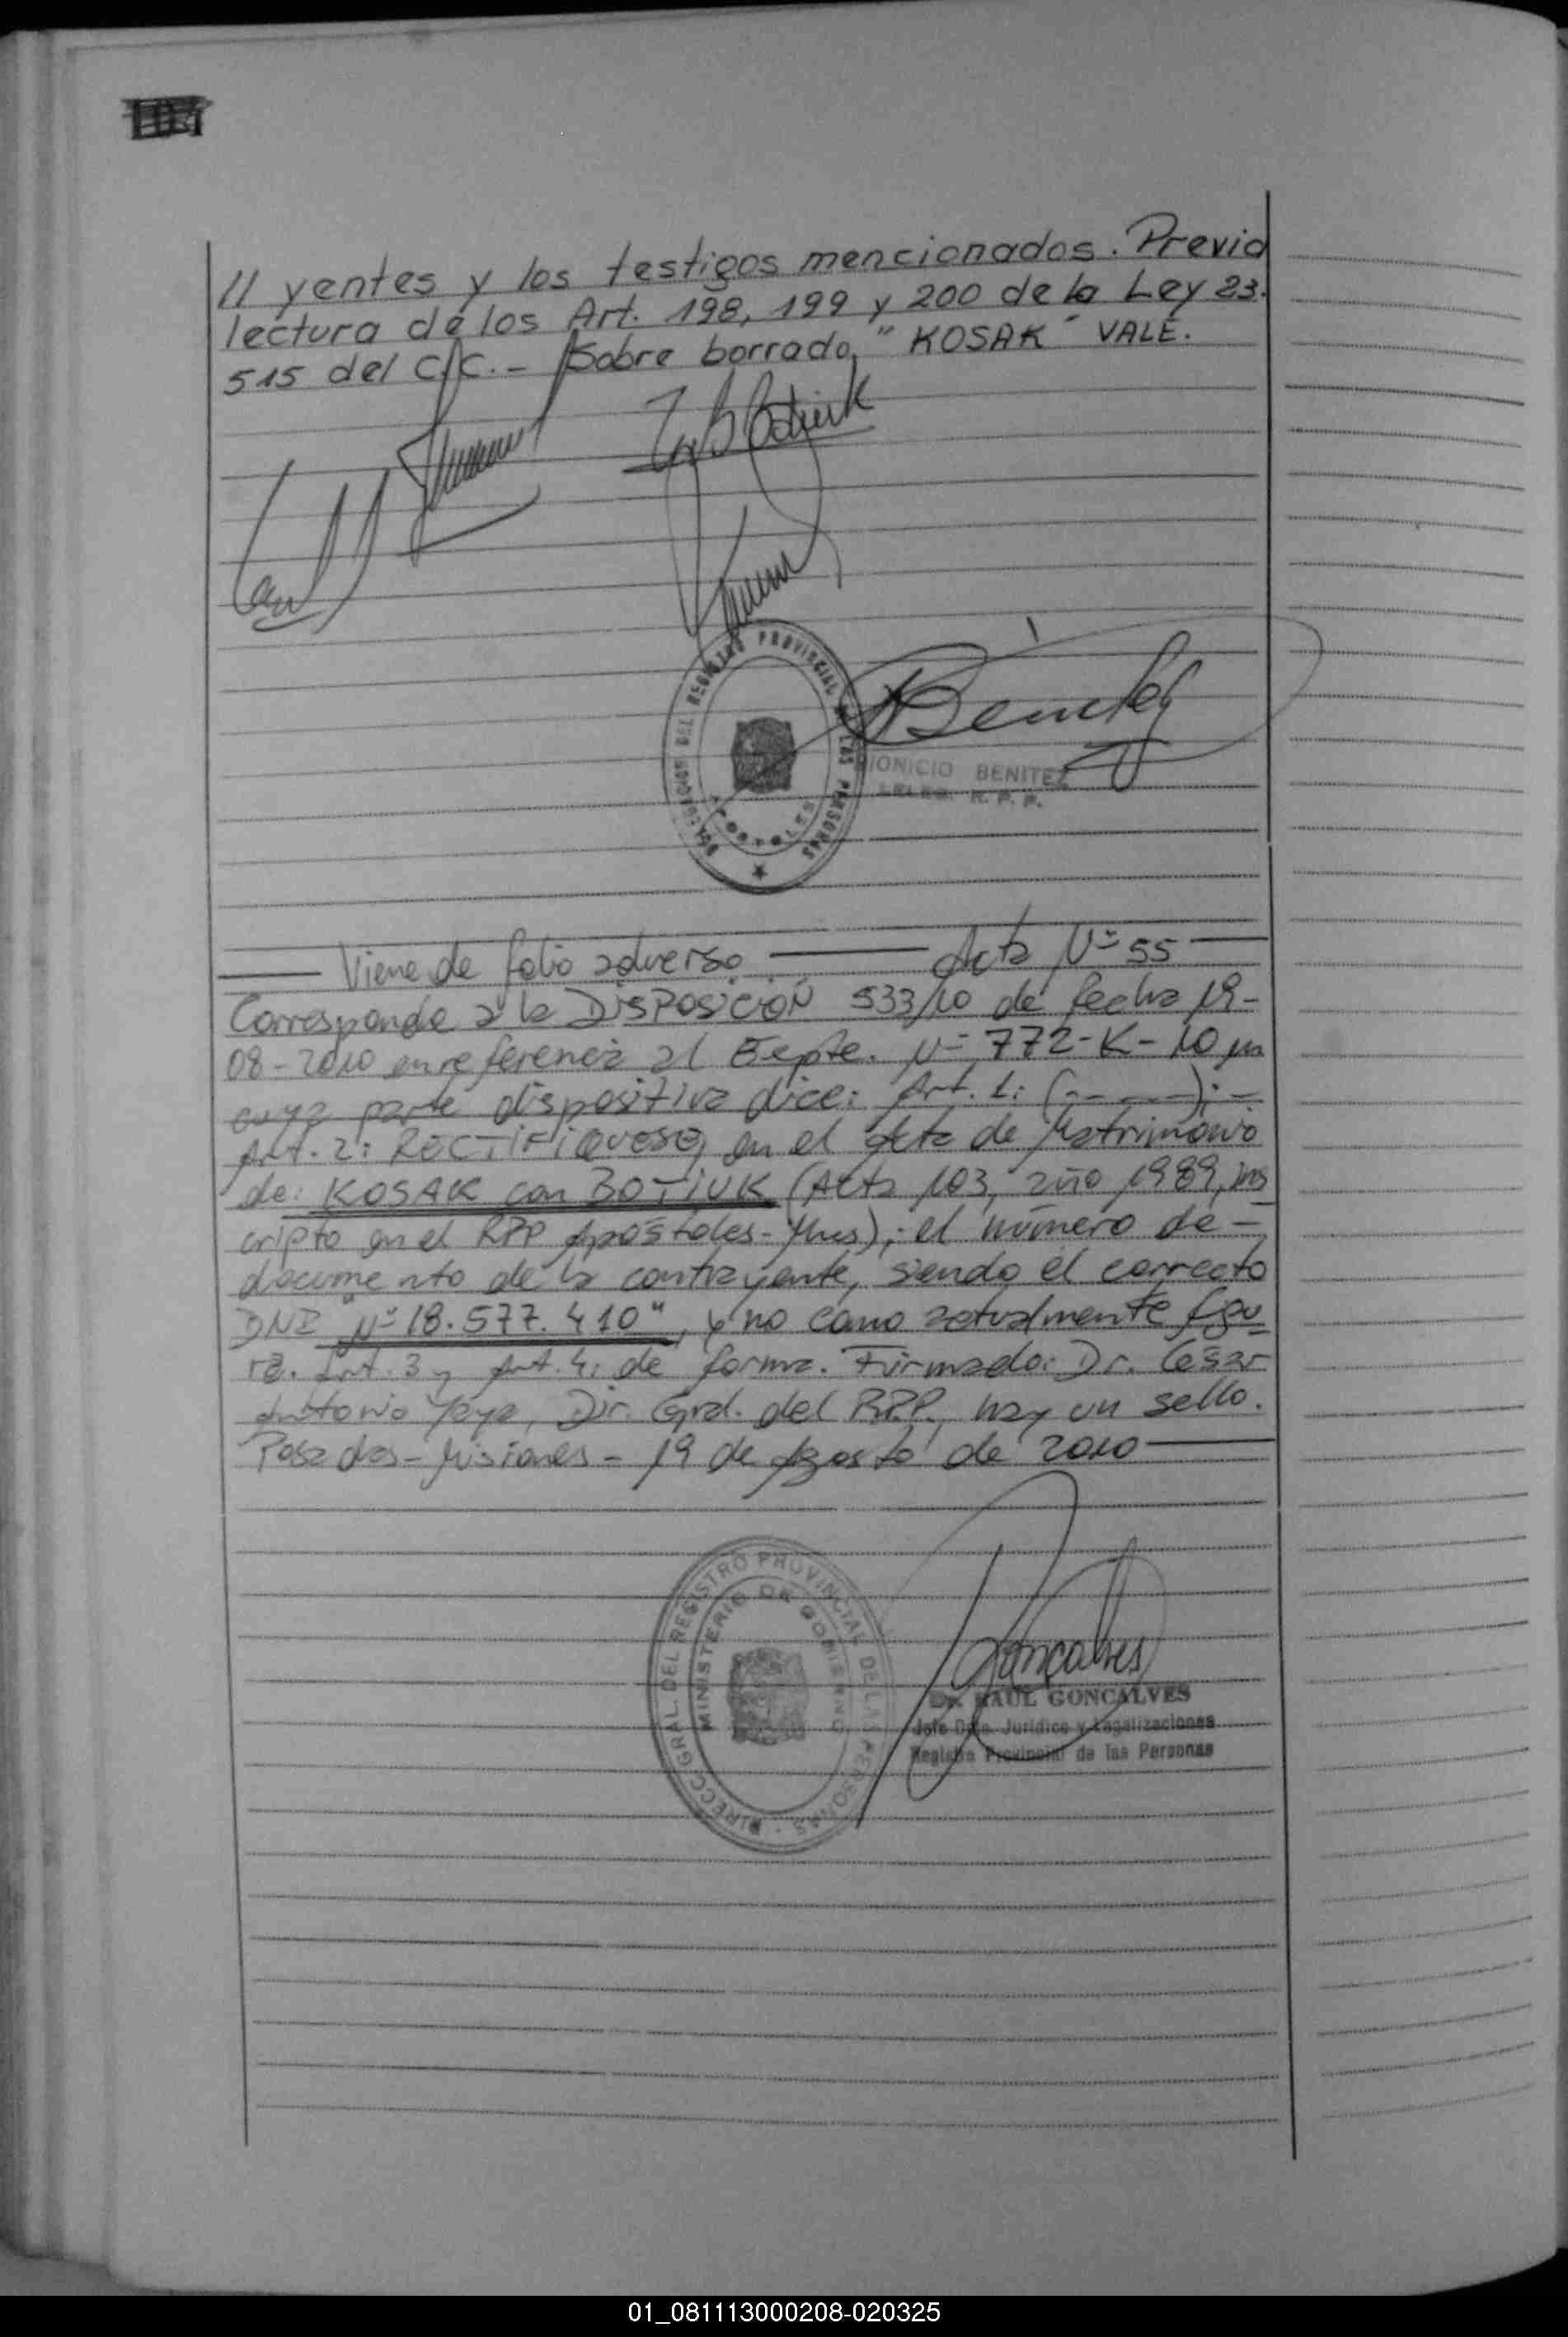 // yentes y los testigos mencionados. Previa
lectura de los Art. 198, 199 y 200 de la Ley 23.
515 del C/C.- Sobre borrado, "KOSAK" VALE.
DELEGACION DEL REGISTRO PROVINCIAL DE LAS PERSONAS
APOSTOLES
DIONICIO BENITEZ
DELEG. R. P. P.
Viene de folio adverso Acta Nº 55
Corresponde a la DISPOSICIÓN 533/10 de fecha 19-
08-2010 en referencia al Expte. Nº 772-K-10 en
cuya parte dispositiva dice: Art. 1: (- - - -);-
Art. 2: RECTIFIQUESE, en el Acta de Matrimonio
de: KOSAK con BOTIUK (Acta 103, año 1989, ins
cripto en el RPP Apóstoles-Mnes); el número de-
documento de la contrayente, siendo el correcto
DNI "Nº 18.577.410", y no como actualmente figu
ra. Art. 3 y Art. 4: de forma. Firmado: Dr. César
Antonio Yaya, Dir. Gral. del RPP., hay un sello.
Posadas-Misiones- 19 de Agosto de 2010
DIRECC. GRAL. DEL REGISTRO PROVINCIAL DE LAS PERSONAS
MINISTERIO DE GOBIERNO
Dr. RAUL GONCALVES
Jefe Dpto. Jurídico y Legalizaciones
Registro Provincial de las Personas
01_081113000208-020325